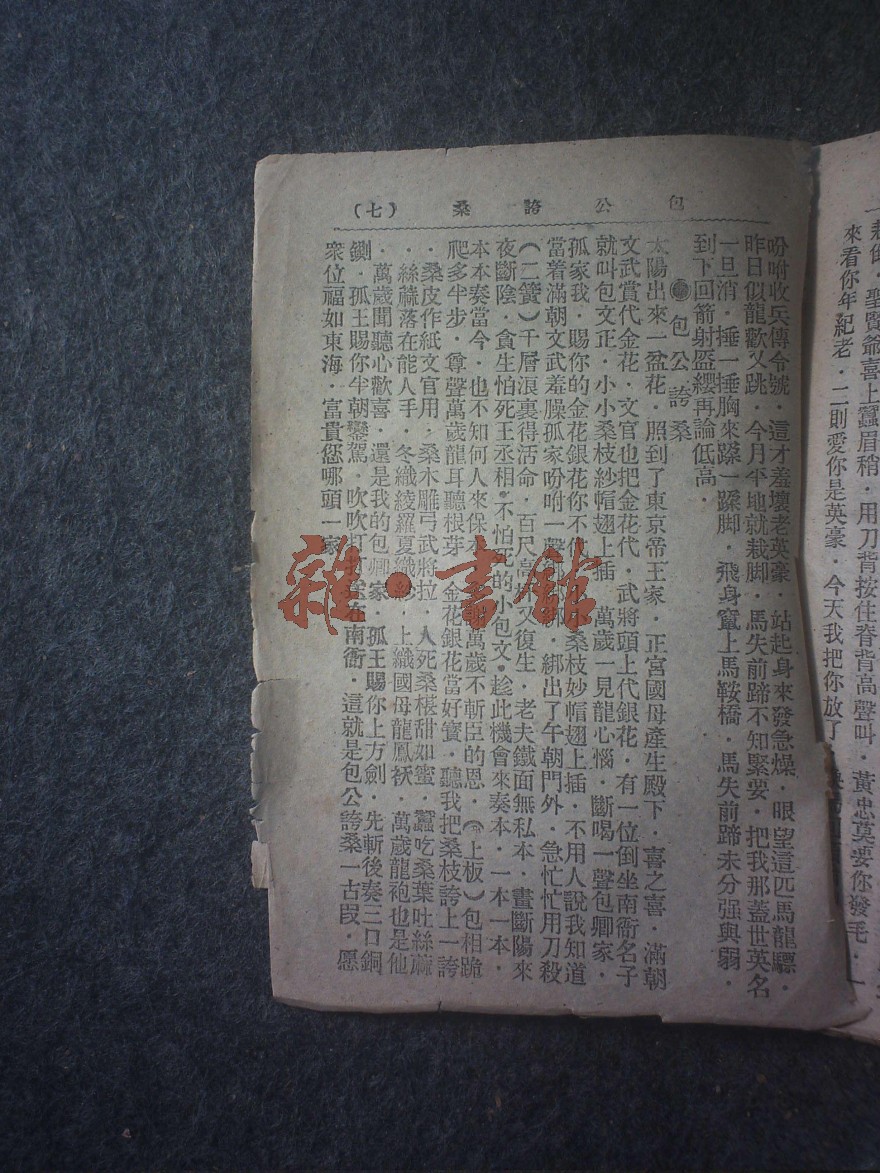 來看你年紀老．二則愛你是英豪．今天我把你放了
聖賢爺喜上蠶眉稍．用刀背按住脊背高聲叫．黃忠莫要你發毛．
包公誇桑（七）
吩咐收兵傳令號．這才羞壞老英豪．站起身來發急燥．眼望這匹馬龍驃．
昨日似龍歡又跳．今月平地就栽脚．馬失前蹄不知緊要．把我那蓋世英名
一旦消．捶一捶胸來蹂一蹂脚．飛身竄上馬鞍橋．馬失前蹄未分强與弱．
到下回箭射盔纓再論低高．
包公誇桑
太陽出來一盆花．照到了東京帝王家．正宮國母產生殿下．喜之喜．滿朝
文武賞代金花．文官也把金花代．武將頭上代銀花．有一位倒坐南衙名子
就叫包文正．小小桑枝紗帽翅上插．萬歲一見龍心惱．斷喝一聲包卿家．
孤家我．賜你的金花銀花你不
桑枝妙帽翅上插．不用人說我知道
當着滿朝文武羞臊孤家吩咐一聲
綁出了午朝門外．急忙忙用刀殺
（二簧）千層浪裏得活命．百尺
又復生．老夫鐵面無私本．晝斷陽來
夜斷陰．貪生怕死王丞相．不怕死的小包文．趁此機會來奏本．一本一本．
本本奏當今．也不知何人來保本
萬歲不斬臣的恩．（上板）包相跪
爬多半步．尊聲萬歲龍耳聽根芽．金花銀花當好寶．聽我把桑枝誇上一誇
．桑皮作紙文官用．桑木雕弓武將拉．人死桑椹甜如蜜．蠶吃桑葉吐絲蔴
．絲蔴落在能人手．冬織綾羅夏織紗．上織國母龍鳳袄．萬歲龍袍也是他
．萬歲聞聽心歡喜．還是我的包卿家．孤王賜你上方劍．先斬後奏三口銅
鍘．孤王賜你半朝鑾駕．吹吹打打送在南衙．這就是包公誇桑一古叚．愿
衆位福如東海．富貴您哪頭一家
雜·書館